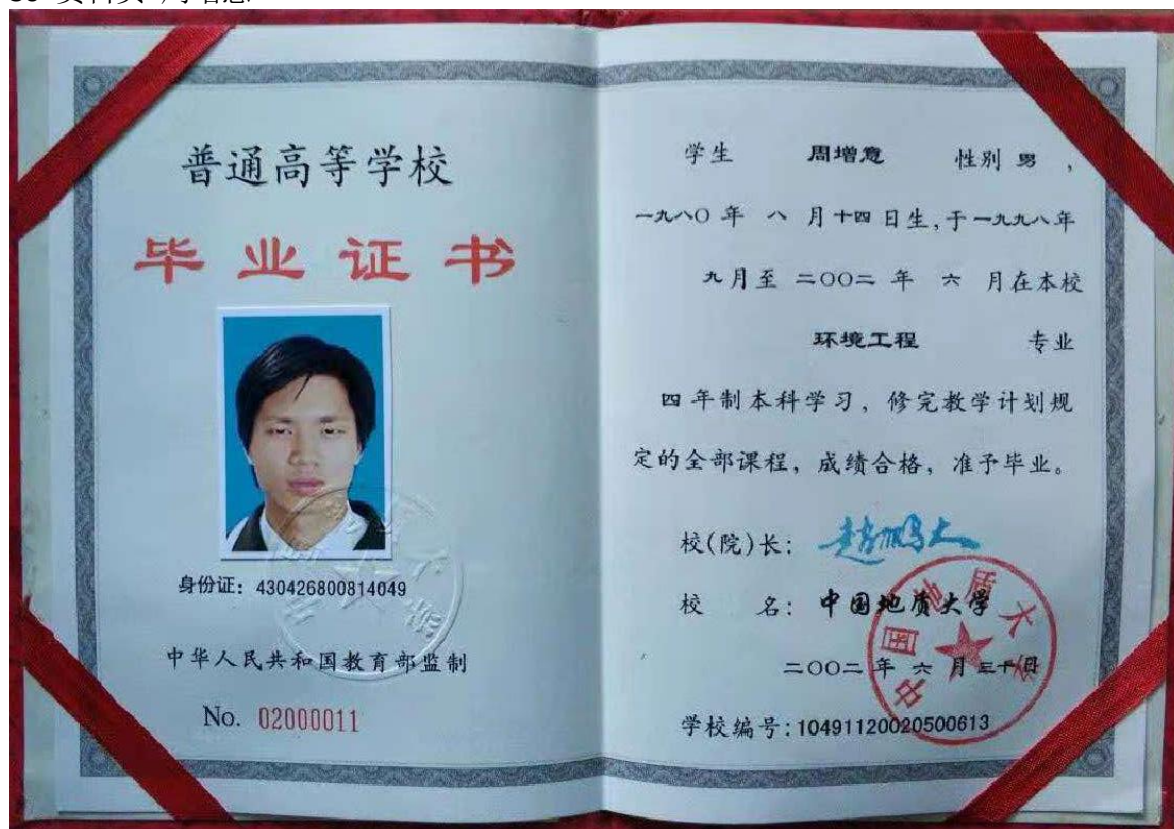 普通高等学校
毕业证书
身份证：430426800814049
中华人民共和国教育部监制
No. 02000011
学生 周增意 性别 男，
一九八〇年 八 月十四日生，于一九九八年
九月至 二〇〇二 年 六 月在本校
环境工程 专业
四年制本科学习，修完教学计划规
定的全部课程，成绩合格，准予毕业。
校(院)长：赵鹏大
校 名：中国地质大学
中国地质大学
二〇〇二年 六 月三十日
学校编号：104911200205000613